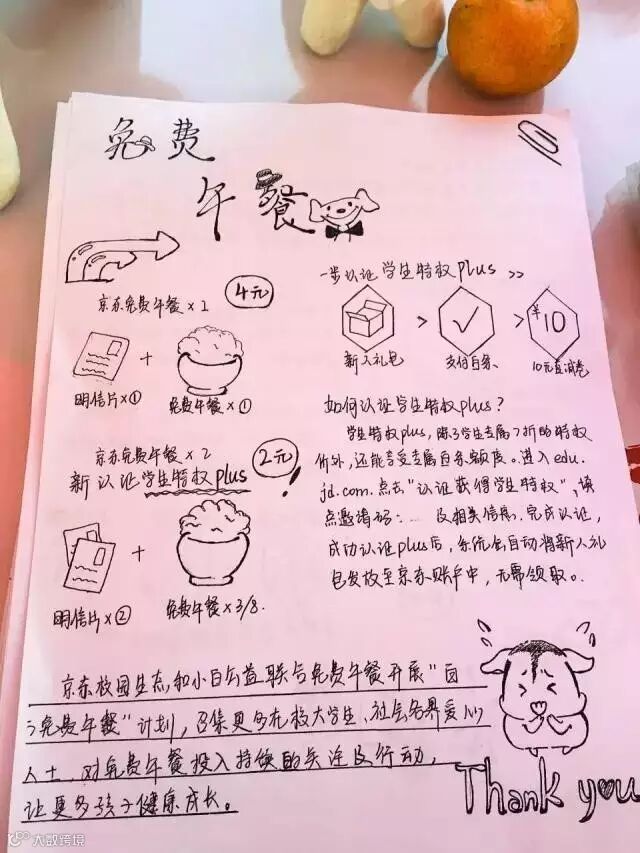 免费
午餐
京东免费午餐×1 4元
明信片×① + 免费午餐×①
京东免费午餐×2 2元
新认证学生特权plus!
明信片×② + 免费午餐×3/8.
一步认证学生特权plus >>
¥10
新人礼包 > 支付白条 > 10元直消卷
如何认证学生特权plus?
学生特权plus,除了学生专属7折的特权
价外,还能享受专属白条额度。进入edu.
jd.com.点击"认证获得学生特权",填
点邀请码:... 及相关信息.完成认证,
成功认证plus后,系统会自动将新人礼
包发放至京东账户中,无需领取。
京东校园生态和小白 联合免费午餐开展"百
免费午餐"计划,召集更多在校大学生、社会各界爱心
人士,对免费午餐投入持续的关注及行动,
让更多孩子健康成长。
Thank you
大数跨境